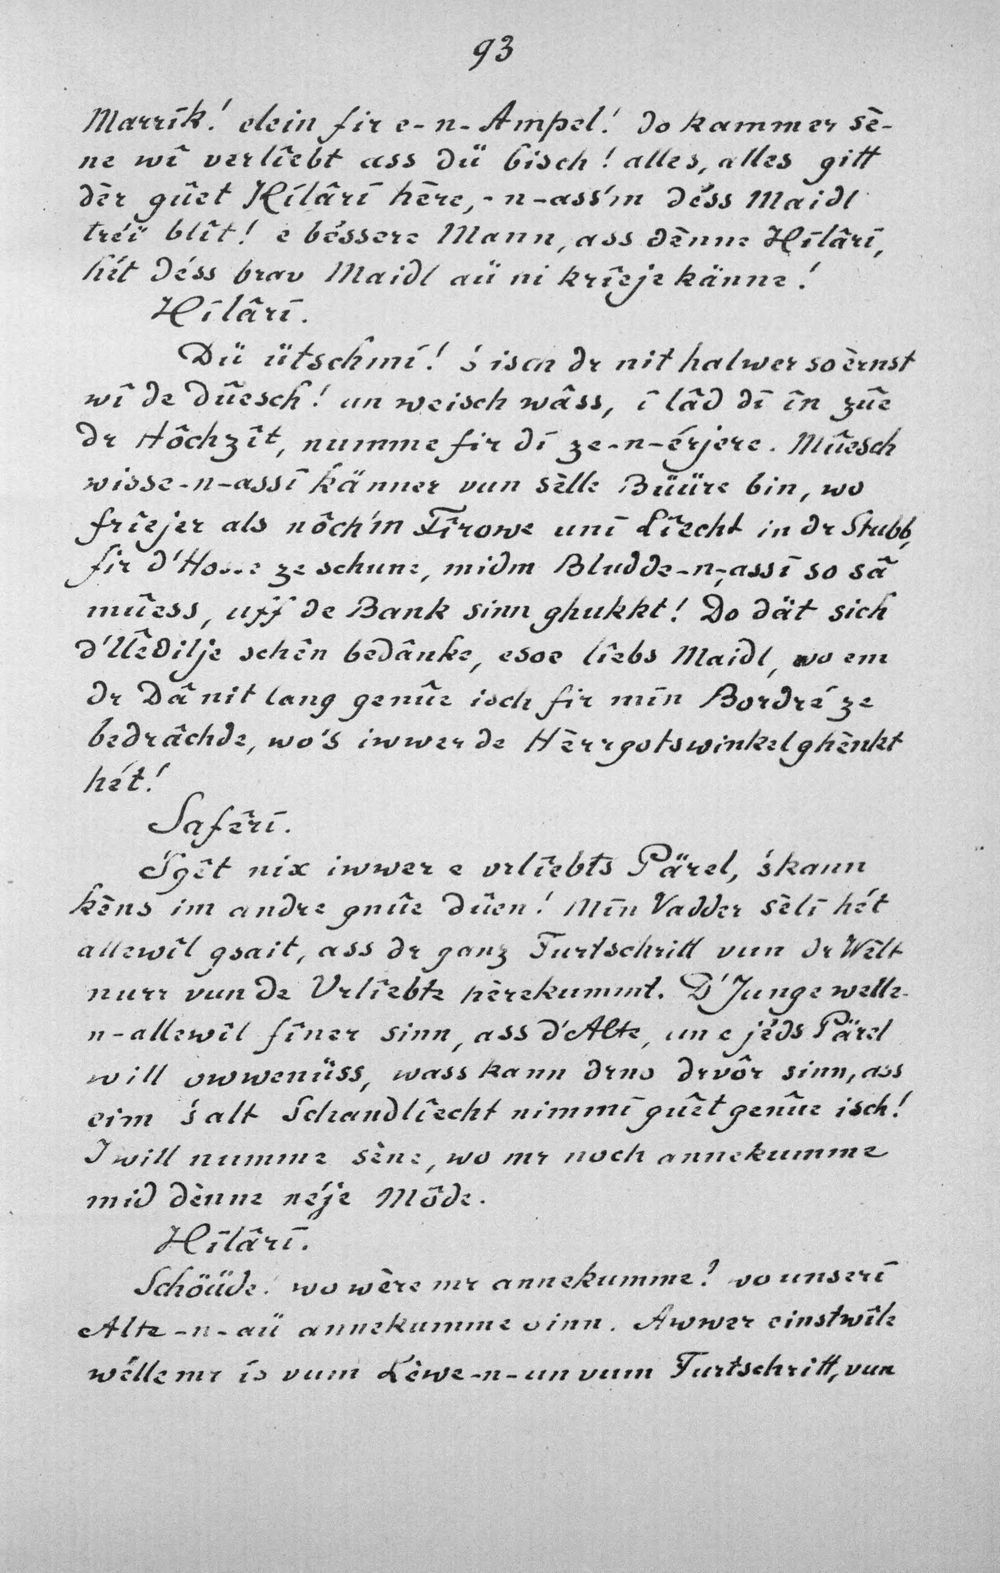 93
Marrīk! elein fir e-n-Ampel! do kammer sè-
ne wî verlîebt ass dü bisch! alles, alles gitt
dèr gûet Hīlârī hère,-n-ass'm déss Maidl
tréï blît! e béssere Mann, ass dènne Hīlârī,
hét déss brav Maidl aü ni krîeje känne!
Hīlârī.
Dü ütschmī! 's isch dr nit halwer so èrnst
wî de dûesch! un weisch wâss, ī lâd dī īn zûe
dr Hôchzît, numme fir dī ze-n-érjere. Mûesch
wisse-n-assī känner vun sèlle Büüre bin, wo
frîejer als nôch'm Fîrowe unī Lîecht in dr Stubb,
fir d'Hosse ze schune, midm Bludde-n-, assī so sâ
mûess, uff de Bank sinn ghukkt! Do dät sich
d'Ûedilje schên bedânke, esoe lîebs Maidl, wo em
dr Dâ nit lang genûe isch fir mīn Bordré ze
bedrâchde, wo's iwwer de Hèrrgotswinkel ghènkt
hét!
Saférī.
S'gêt nix iwwer e vrlîebts Pärel, 's kann
kèns im andre gnûe dûen! Mīn Vadder sèlī hét
allewîl gsait, ass dr ganz Furtschritt vun dr Wèlt
nurr vun de Vrlîebte hèrekummt. D'Junge welle-
n-allewîl fîner sinn, ass d'Alte, un e jéds Pärel
will owwenüss, wass kann drno drvôr sinn, ass
eim 's alt Schandlîecht nimmī gûet genûe isch!
I will numme sène, wo mr noch annekumme
mid dènne néje Môde.
Hīlârī.
Schöüde! wo wère mr annekumme? wo unserī
Alte-n-aü annekumme sinn. Awwer einstwîle
wélle mr īs vum Lèwe-n-un vum Furtschritt, vun